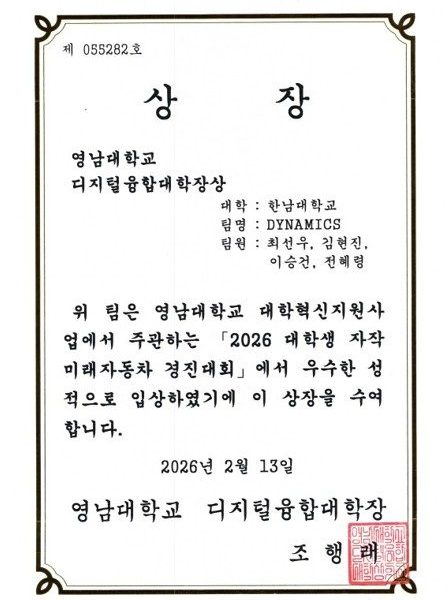 제 055282호
상 장
영남대학교
디지털융합대학장상
대학 : 한남대학교
팀명 : DYNAMICS
팀원 : 최선우, 김현진,
이승건, 전혜령
위 팀은 영남대학교 대학혁신지원사
업에서 주관하는 「2026 대학생 자작
미래자동차 경진대회」에서 우수한 성
적으로 입상하였기에 이 상장을 수여
합니다.
2026년 2월 13일
영남대학교 디지털융합대학장
조 행 래